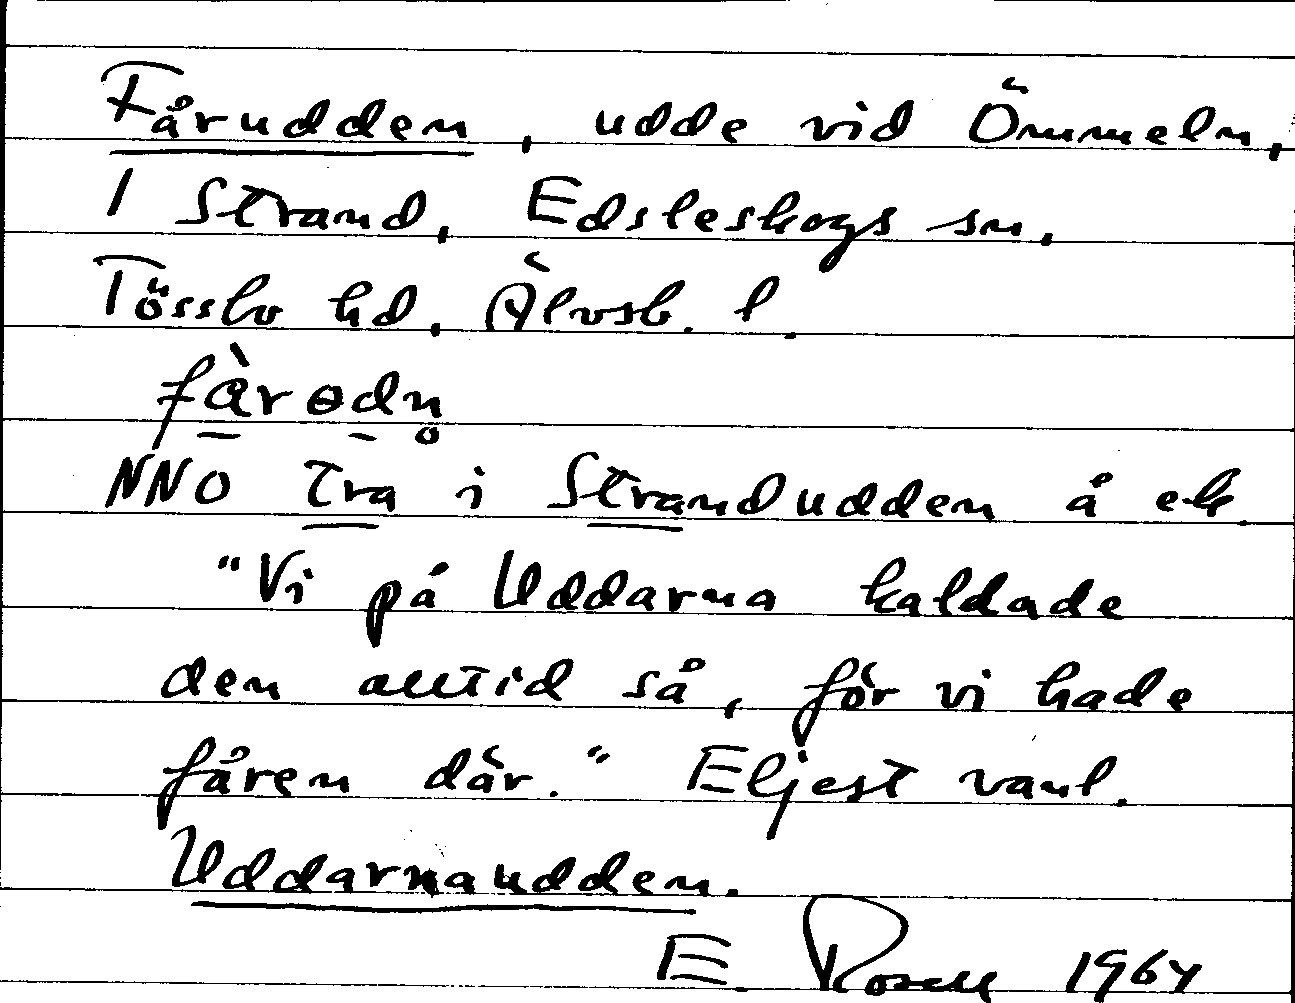 Fårudden, udde vid Ömmeln,
I Strand, Edsleskogs sn,
Tössbo hd, Älvsb. l.
fàrɵdn̥
NNO tra i Strandudden å ek.
"Vi på Uddarna kaldade
den alltid så, för vi hade
fåren där." Eljest vanl.
Uddarnaudden.
E. Rosell 1964